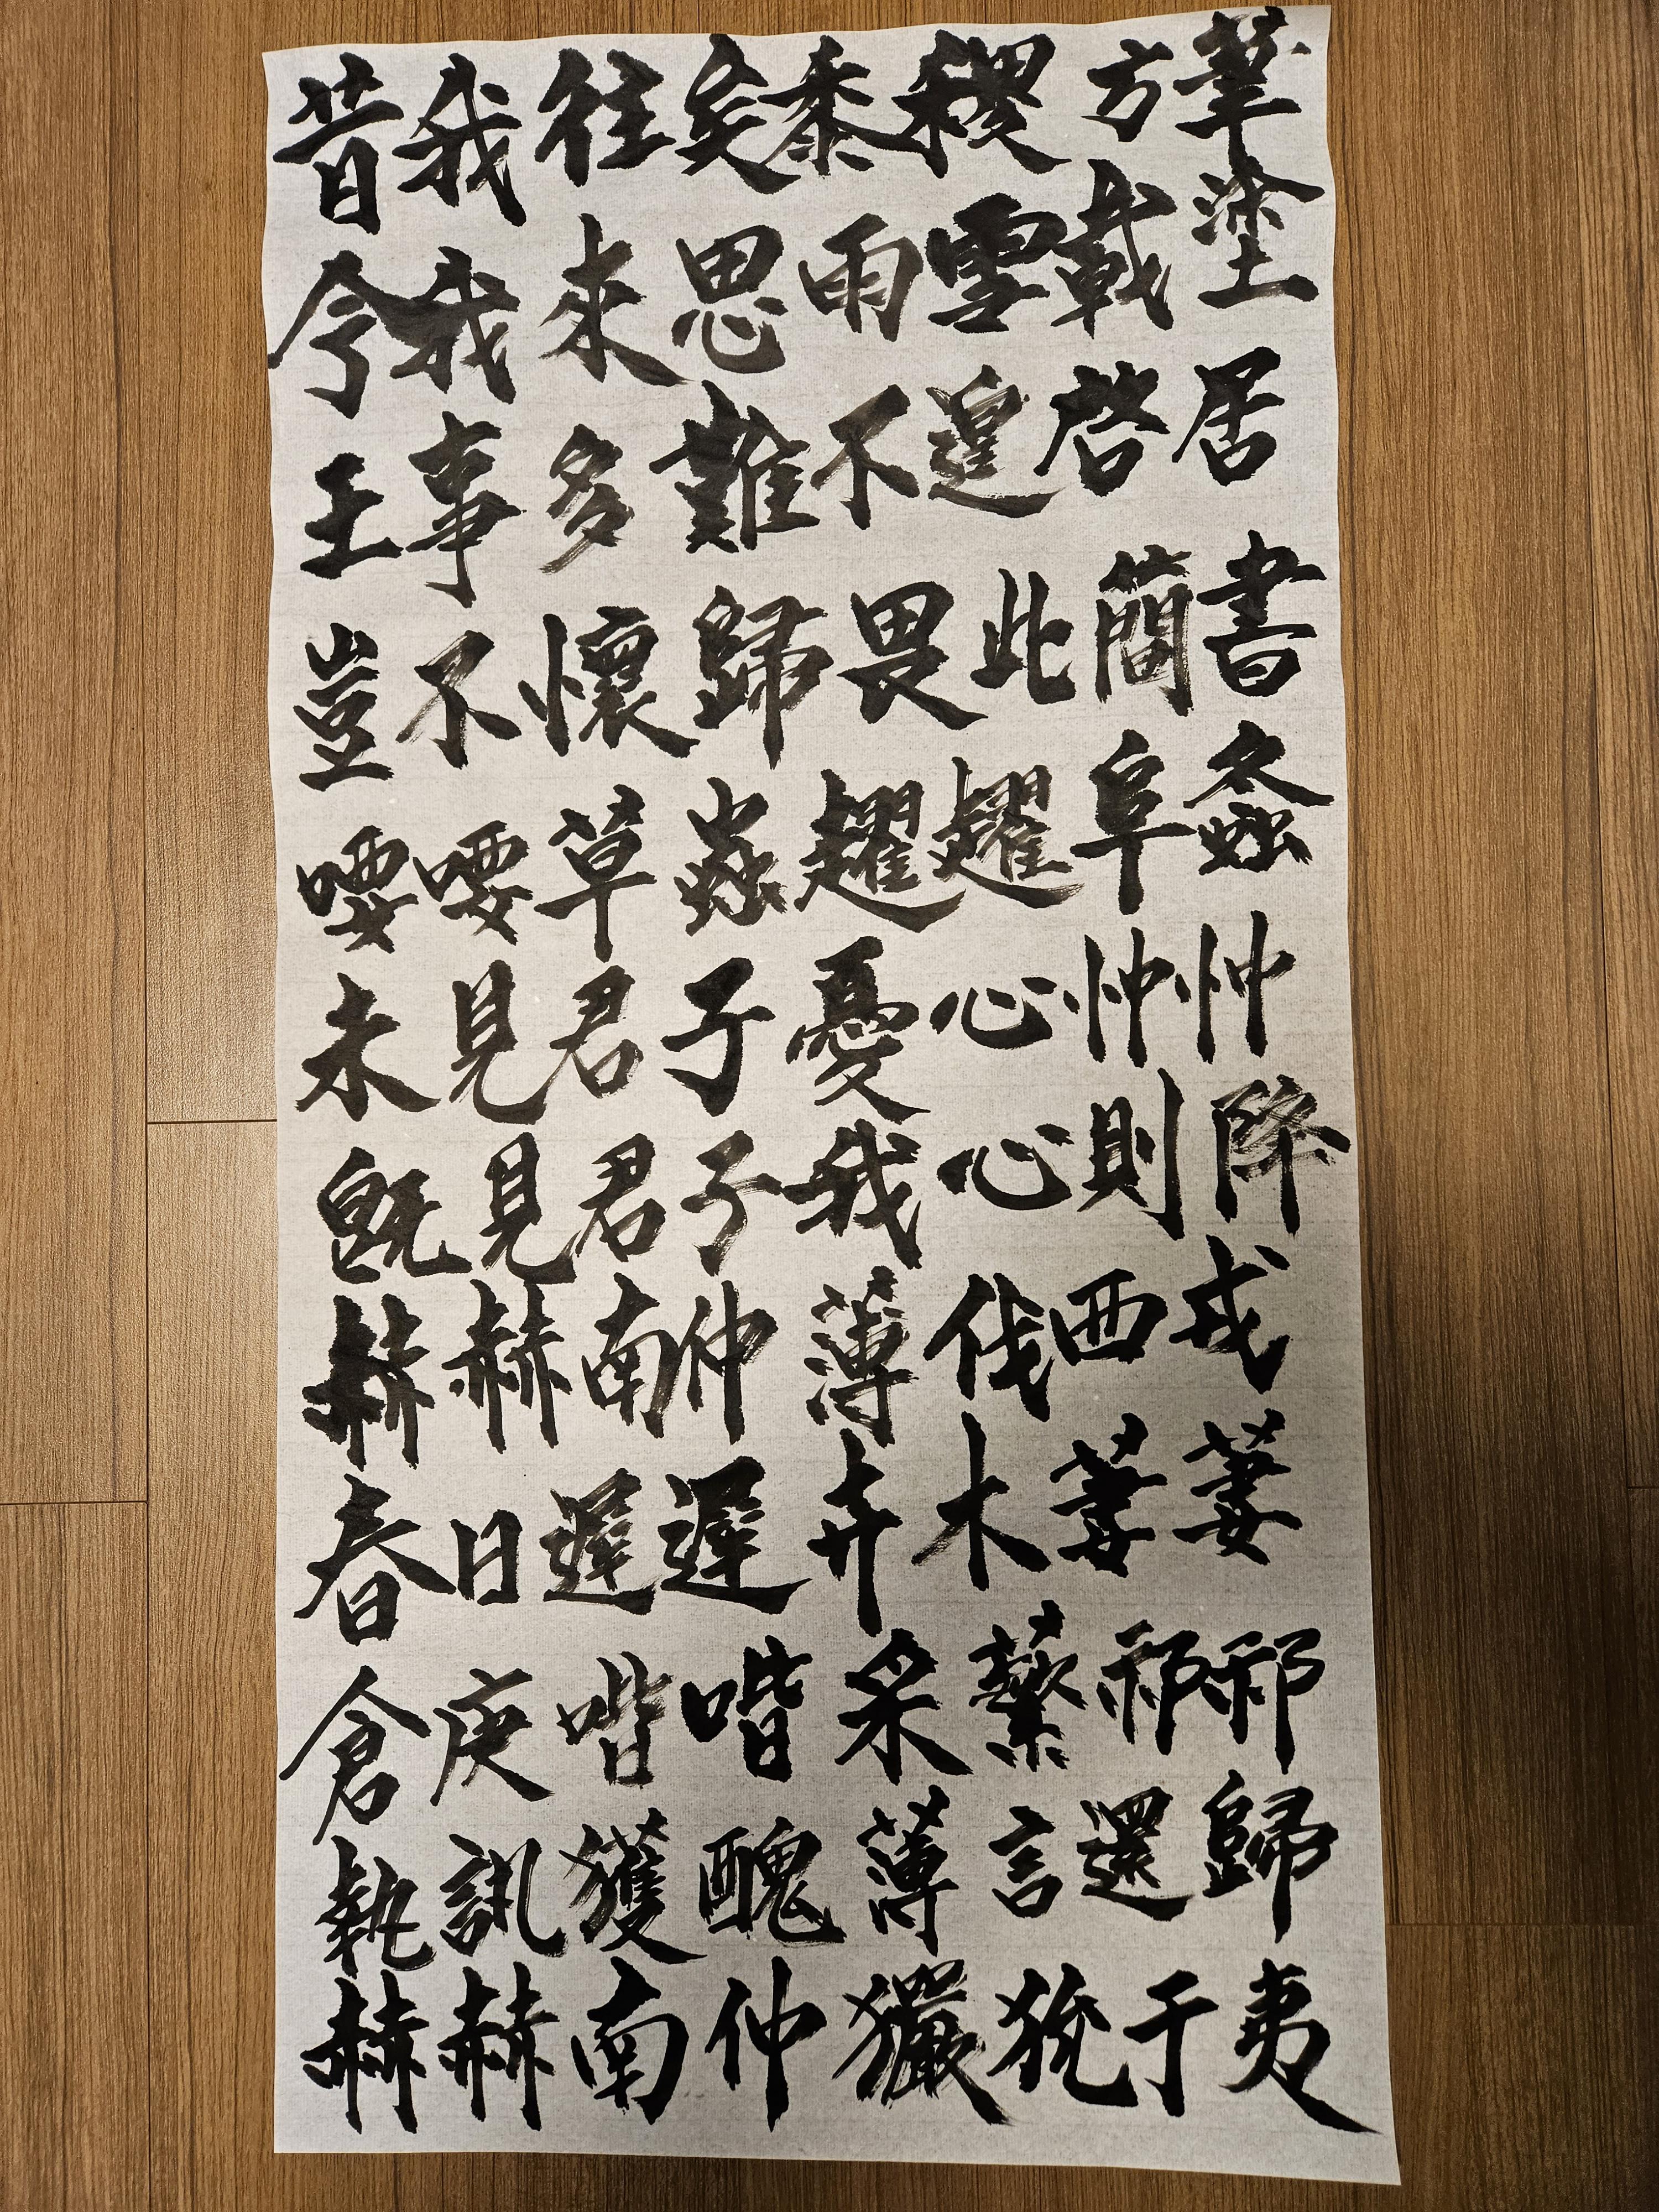 昔我往矣黍稷方華
今我來思雨雪載塗
王事多難不遑啓居
豈不懷歸畏此簡書
喓喓草蟲趯趯阜螽
未見君子憂心忡忡
既見君子我心則降
赫赫南仲薄伐西戎
春日遲遲卉木萋萋
倉庚喈喈采蘩祁祁
執訊獲醜薄言還歸
赫赫南仲玁狁于夷